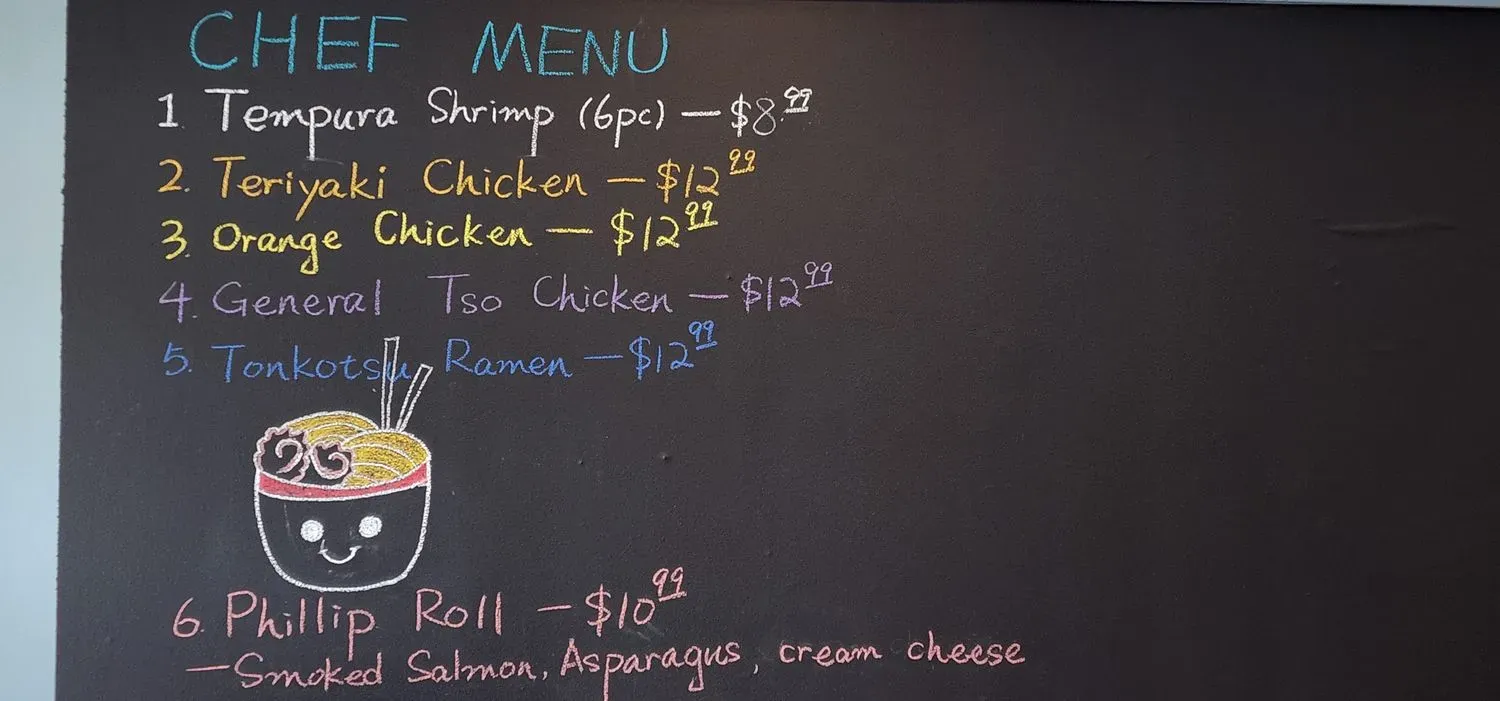 CHEF MENU
1. Tempura Shrimp (6pc) — $8.99
2. Teriyaki Chicken — $12.99
3. Orange Chicken — $12.99
4. General Tso Chicken — $12.99
5. Tonkotsu Ramen — $12.99
6. Phillip Roll — $10.99
— Smoked Salmon, Asparagus, cream cheese